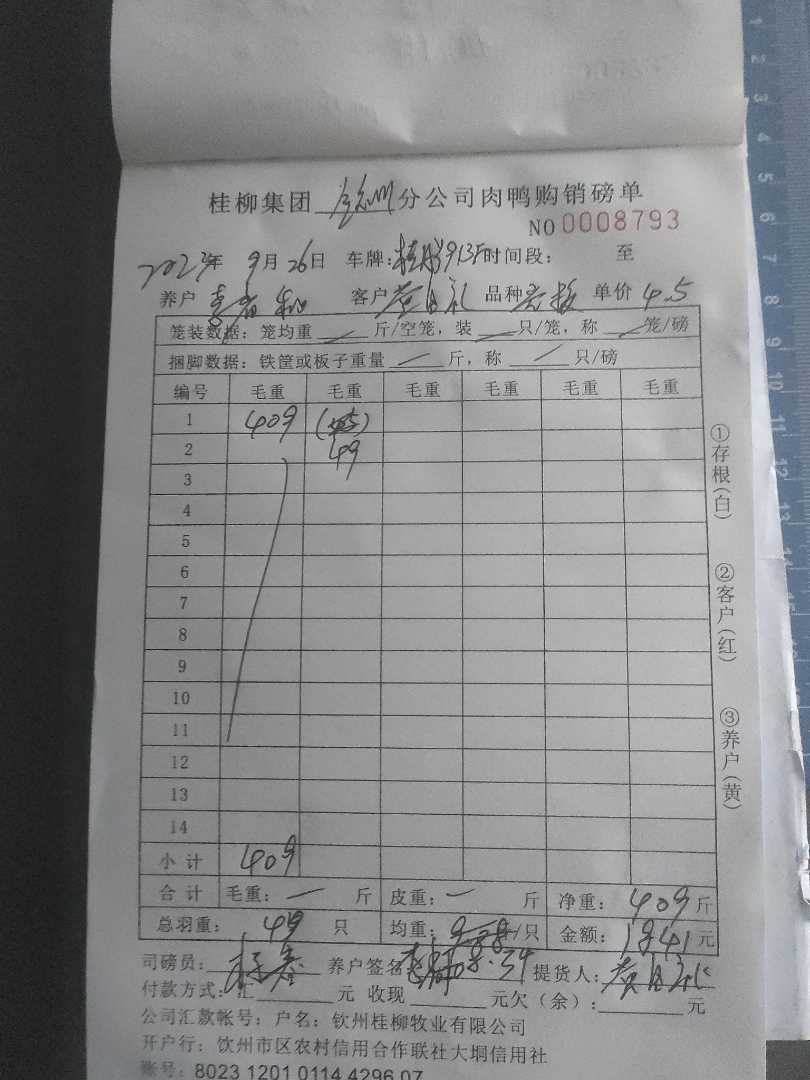 桂柳集团 钦州 分公司肉鸭购销磅单
NO 0008793
2023年 9月26日 车牌: 时间段: 至
养户 客户 品种 单价 4.5
笼装数据: 笼均重 / 斤/空笼, 装 / 只/笼, 称 / 笼/磅
捆脚数据: 铁筐或板子重量 / 斤, 称 / 只/磅
编号 毛重 毛重 毛重 毛重 毛重 毛重
1 409
2 49
3
4
5
6
7
8
9
10
11
12
13
14
小计 409
合计 毛重: 一 斤 皮重: 一 斤 净重: 409 斤
总羽重: 49 只 均重: 8.34 /只 金额: 1841 元
司磅员: 养户签名 提货人:
付款方式: 汇 元 收现 元欠(余): 元
公司汇款帐号: 户名: 钦州桂柳牧业有限公司
开户行: 钦州市区农村信用合作联社大垌信用社
账号: 8023 1201 0114 4296 07
①存根(白)
②客户(红)
③养户(黄)